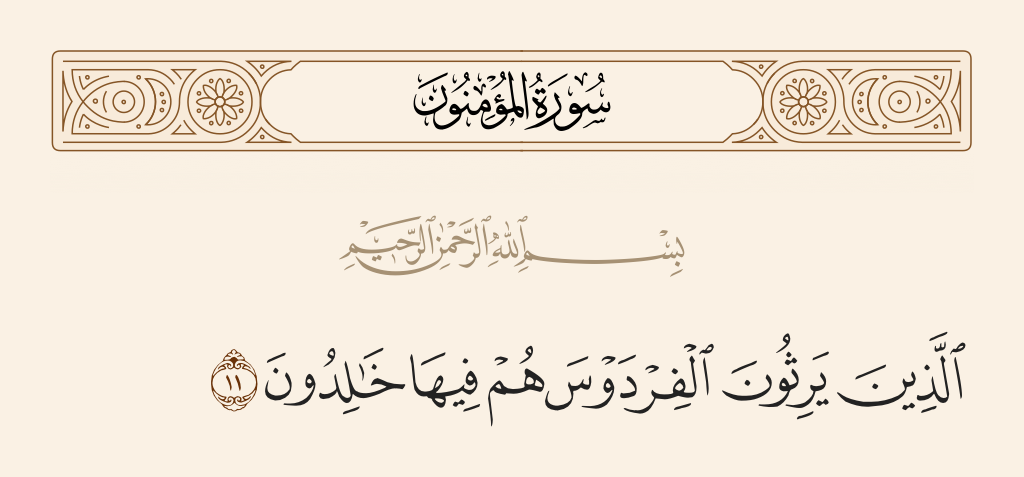 سُورَةُ المُؤْمِنُونَ
بِسْمِ ٱللَّهِ ٱلرَّحْمَٰنِ ٱلرَّحِيمِ
ٱلَّذِينَ يَرِثُونَ ٱلْفِرْدَوْسَ هُمْ فِيهَا خَٰلِدُونَ ١١